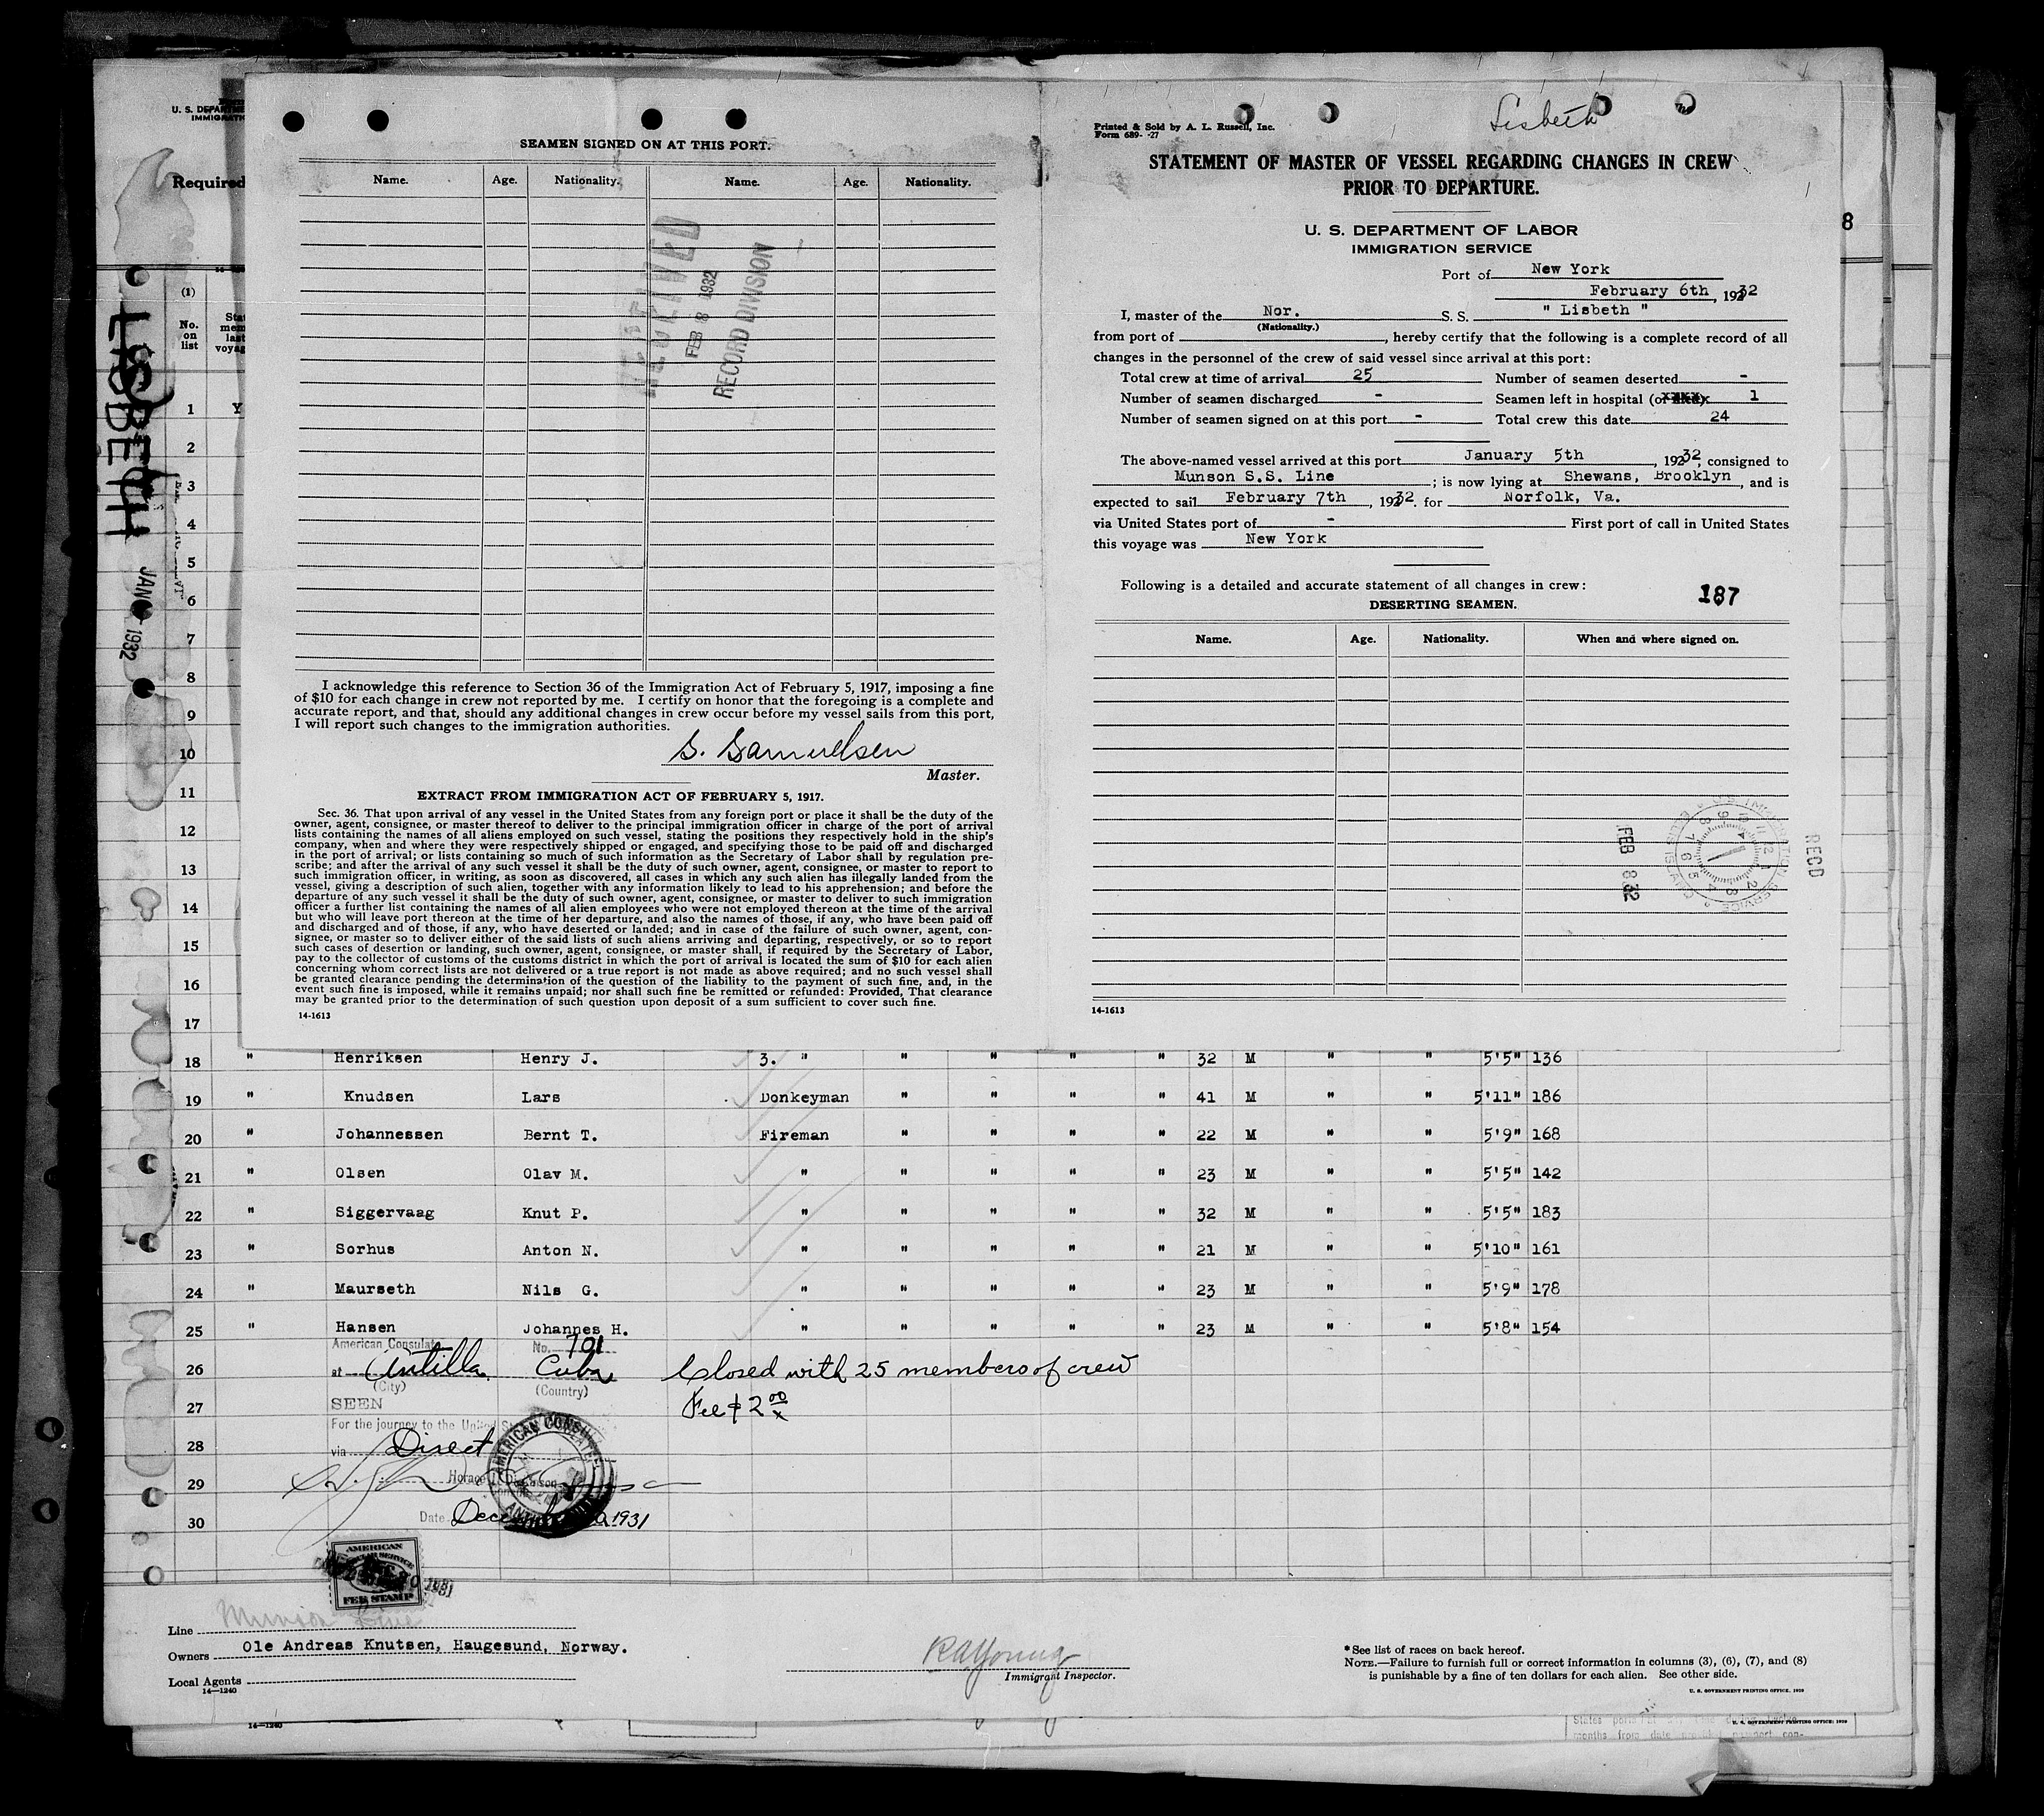 U. S. DEPARTME
IMMIGRATIO
Required
(1)
No.
on
list
Stat
mem
last
voyag
LISBETH
JAN 1932
1 Y
2
3
4
5
6
7
8
9
10
11
12
13
14
15
16
17
SEAMEN SIGNED ON AT THIS PORT.
Name. Age. Nationality. Name. Age. Nationality.
RECEIVED
FEB 8 1932
RECORD DIVISION
I acknowledge this reference to Section 36 of the Immigration Act of February 5, 1917, imposing a fine
of $10 for each change in crew not reported by me. I certify on honor that the foregoing is a complete and
accurate report, and that, should any additional changes in crew occur before my vessel sails from this port,
I will report such changes to the immigration authorities.
S. Samuelsen
Master.
EXTRACT FROM IMMIGRATION ACT OF FEBRUARY 5, 1917.
Sec. 36. That upon arrival of any vessel in the United States from any foreign port or place it shall be the duty of the
owner, agent, consignee, or master thereof to deliver to the principal immigration officer in charge of the port of arrival
lists containing the names of all aliens employed on such vessel, stating the positions they respectively hold in the ship's
company, when and where they were respectively shipped or engaged, and specifying those to be paid off and discharged
in the port of arrival; or lists containing so much of such information as the Secretary of Labor shall by regulation pre-
scribe; and after the arrival of any such vessel it shall be the duty of such owner, agent, consignee, or master to report to
such immigration officer, in writing, as soon as discovered, all cases in which any such alien has illegally landed from the
vessel, giving a description of such alien, together with any information likely to lead to his apprehension; and before the
departure of any such vessel it shall be the duty of such owner, agent, consignee, or master to deliver to such immigration
officer a further list containing the names of all alien employees who were not employed thereon at the time of the arrival
but who will leave port thereon at the time of her departure, and also the names of those, if any, who have been paid off
and discharged and of those, if any, who have deserted or landed; and in case of the failure of such owner, agent, con-
signee, or master so to deliver either of the said lists of such aliens arriving and departing, respectively, or so to report
such cases of desertion or landing, such owner, agent, consignee, or master shall, if required by the Secretary of Labor,
pay to the collector of customs of the customs district in which the port of arrival is located the sum of $10 for each alien
concerning whom correct lists are not delivered or a true report is not made as above required; and no such vessel shall
be granted clearance pending the determination of the question of the liability to the payment of such fine, and, in the
event such fine is imposed, while it remains unpaid; nor shall such fine be remitted or refunded: Provided, That clearance
may be granted prior to the determination of such question upon deposit of a sum sufficient to cover such fine.
14-1613
Lisbeth
Printed & Sold by A. L. Russell, Inc.
Form 689- -27
STATEMENT OF MASTER OF VESSEL REGARDING CHANGES IN CREW
PRIOR TO DEPARTURE.
U. S. DEPARTMENT OF LABOR
IMMIGRATION SERVICE
8
Port of New York
February 6th, 1932
I, master of the Nor. S. S. " Lisbeth "
(Nationality.)
from port of , hereby certify that the following is a complete record of all
changes in the personnel of the crew of said vessel since arrival at this port:
Total crew at time of arrival 25 Number of seamen deserted -
Number of seamen discharged - Seamen left in hospital (or died) 1
Number of seamen signed on at this port - Total crew this date 24
The above-named vessel arrived at this port January 5th, 1932, consigned to
Munson S.S. Line ; is now lying at Shewans, Brooklyn, and is
expected to sail February 7th, 1932. for Norfolk, Va.
via United States port of - First port of call in United States
this voyage was New York
Following is a detailed and accurate statement of all changes in crew:
187
DESERTING SEAMEN.
Name. Age. Nationality. When and where signed on.
REC'D
FEB 8 32
U.S. IMMIGRATION SERVICE
ELLIS ISLAND
14-1613
18 " Henriksen Henry J. 3. " " " " " 32 M " " 5'5" 136
19 " Knudsen Lars Donkeyman " " " " 41 M " " 5'11" 186
20 " Johannessen Bernt T. Fireman " " " " 22 M " " 5'9" 168
21 " Olsen Olav M. " " " " " 23 M " " 5'5" 142
22 " Siggervaag Knut P. " " " " " 32 M " " 5'5" 183
23 " Sorhus Anton N. " " " " " 21 M " " 5'10" 161
24 " Maurseth Nils G. " " " " " 23 M " " 5'9" 178
25 " Hansen Johannes H. " " " " " 23 M " " 5'8" 154
American Consulate No. 701
26 at Antilla Cuba Closed with 25 members of crew
(City) (Country)
27 SEEN Fee $2 00
For the journey to the United S
28 via Direct
29
AMERICAN CONSULATE
Date December 1931
30
AMERICAN
SERVICE
FEE STAMP
1931
Line Munson Line
Owners Ole Andreas Knutsen, Haugesund, Norway.
Local Agents
14—1240
RA Young
Immigrant Inspector.
*See list of races on back hereof.
NOTE.—Failure to furnish full or correct information in columns (3), (6), (7), and (8)
is punishable by a fine of ten dollars for each alien. See other side.
U. S. GOVERNMENT PRINTING OFFICE
14—1240
U. S. GOVERNMENT PRINTING OFFICE
months from date